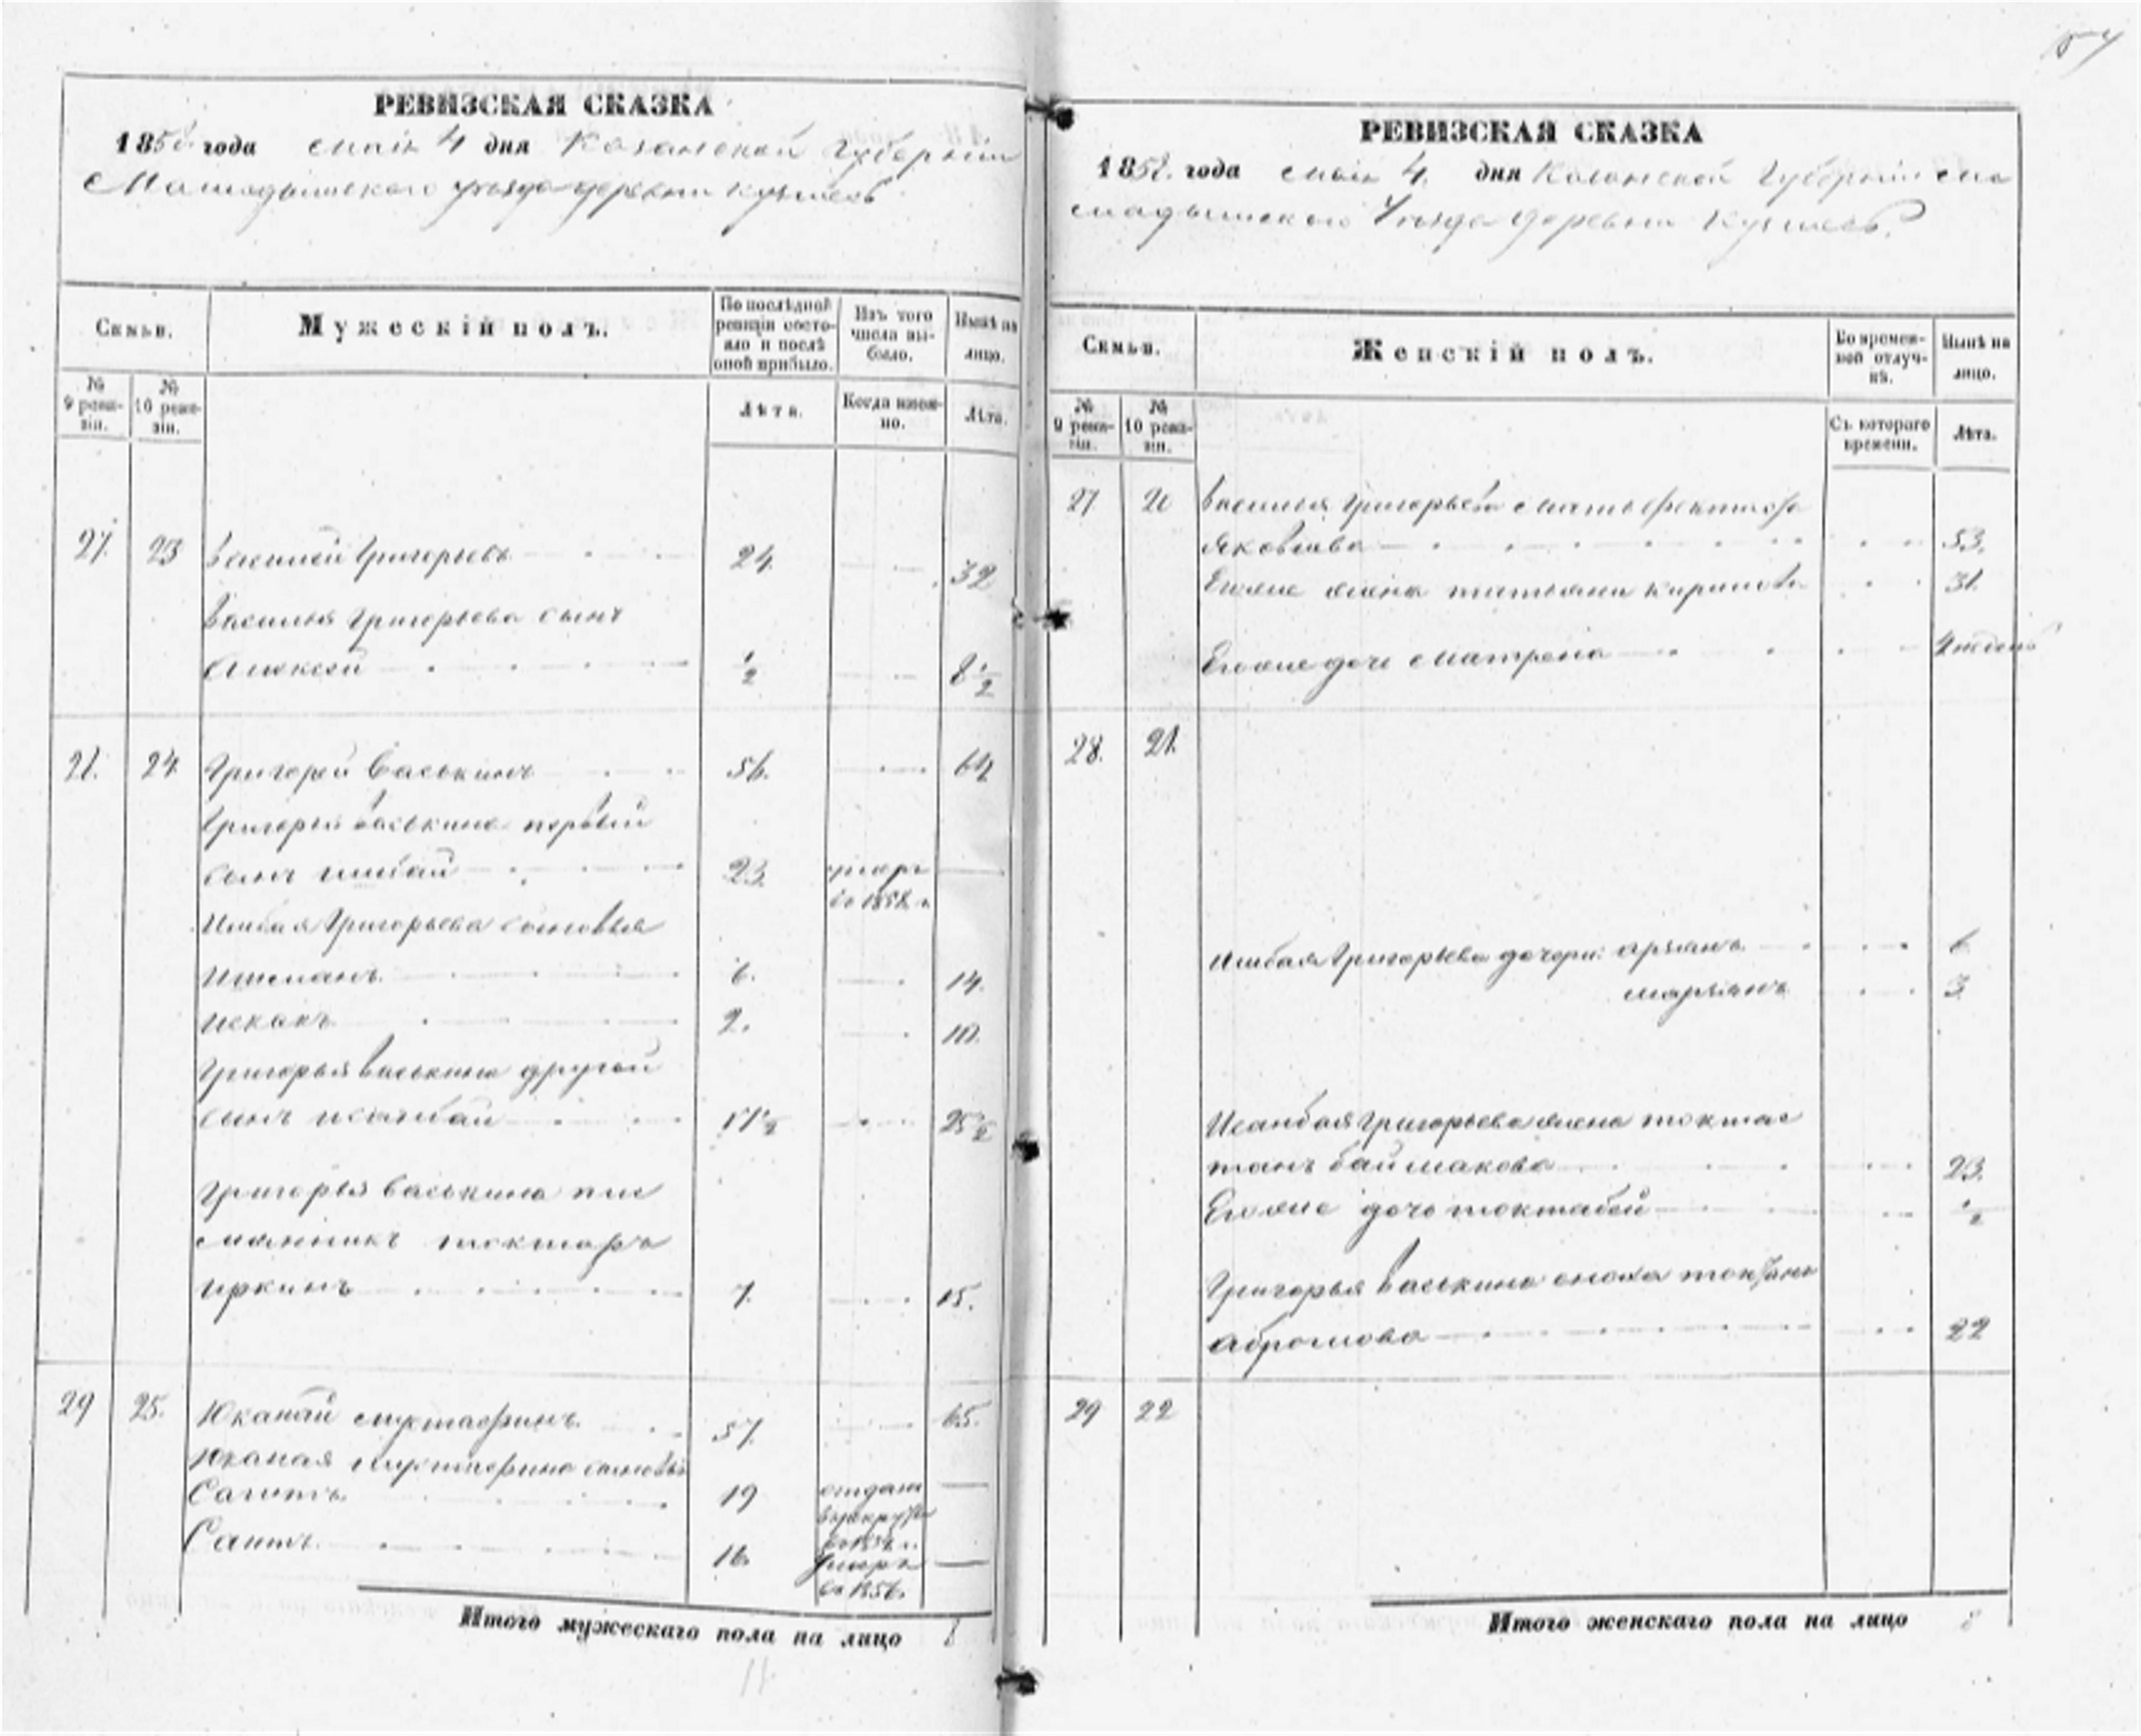 РЕВИЗСКАЯ СКАЗКА
1858 года маія 4 дня Казанской Губерніи
Мамадышскаго уѣзда деревни
Семьи.
Мужескій полъ.
По послѣдней ревизіи состояло и послѣ оной прибыло.
Изъ того числа выбыло.
Нынѣ на лицо.
№ 9 ревизіи.
№ 10 ревизіи.
Лѣта.
Когда именно.
Лѣта.
27. 23 Василей Григорьевъ 24. 32
Василья Григорьева сынъ
Алексей ½ 8½
28. 24 Григорей Васькинъ 56. 64
Григорья Васькина первый
сынъ Ишбай 23. умеръ
въ 1858. г.
Ишбая Григорьева сыновья
Ишманъ 6. 14.
Искакъ 2. 10.
Григорья Васькина другой
сынъ Исанбай 17½ 25½
Григорья Васькина пле
мянникъ Токтаръ
Иркинъ 7. 15.
29 25. Юканай 57. 65.
Юканая сыновья
Сагитъ 19 отданъ
в рекруты
Саитъ 16. умеръ
въ 1856.
Итого мужескаго пола на лицо 8
РЕВИЗСКАЯ СКАЗКА
1858. года маія 4. дня Казанской Губерніи Ма
мадышскаго Уѣзда деревни
Семьи.
Женскій полъ.
Во временной отлучкѣ.
Нынѣ на лицо.
№ 9 ревизіи.
№ 10 ревизіи.
Съ котораго времени.
Лѣта.
27 20 Василья Григорьева мать
Яковлева 53.
Егоже жена Татьяна Кирилова 31.
Егоже дочь Матрена
28. 21.
Ишбая Григорьева дочери: 6
3
Исанбая Григорьева жена Токтас
танъ Баймакова 23.
Егоже дочь Токтабей ½
Григорья Васькина сноха
Абрамова 22
29 22
Итого женскаго пола на лицо 8